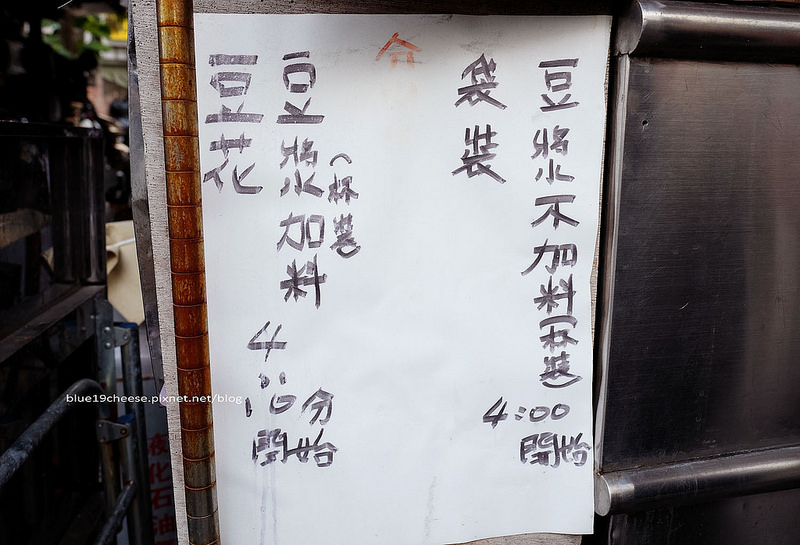 豆漿不加料(杯裝)
袋裝
4:00
開始
豆漿加料
(杯裝)
豆花
開始
blue19cheese.pixnet.net/blog